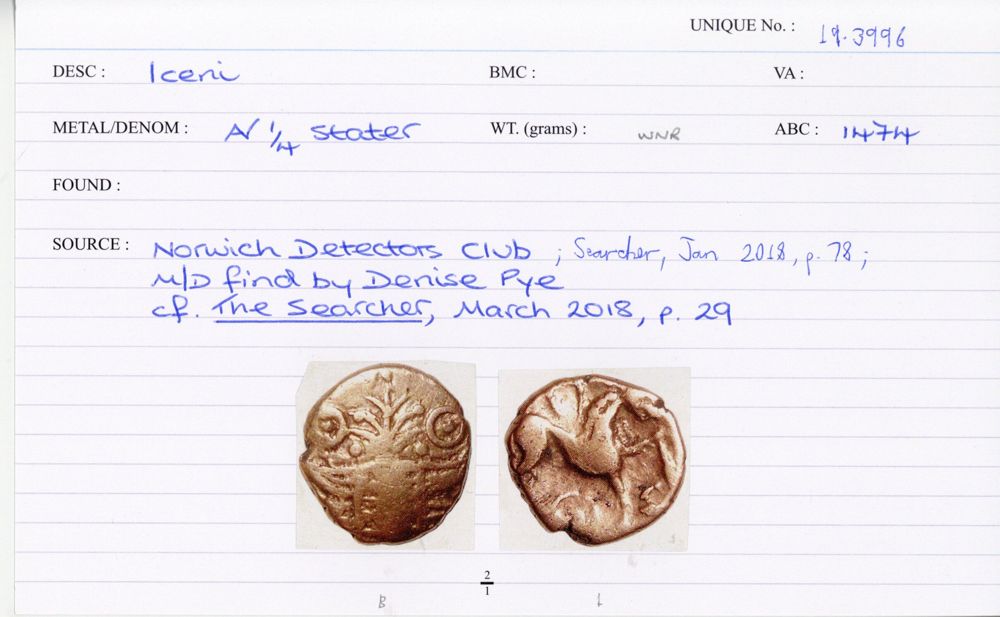 UNIQUE No. : 19.3996
DESC : Iceni BMC : VA :
METAL/DENOM : A/ 1/4 stater WT. (grams) : WNR ABC : 1474
FOUND :
SOURCE : Norwich Detectors Club ; Searcher, Jan 2018, p. 78 ;
M/D find by Denise Pye
cf. The Searcher, March 2018, p. 29
2
1
B L